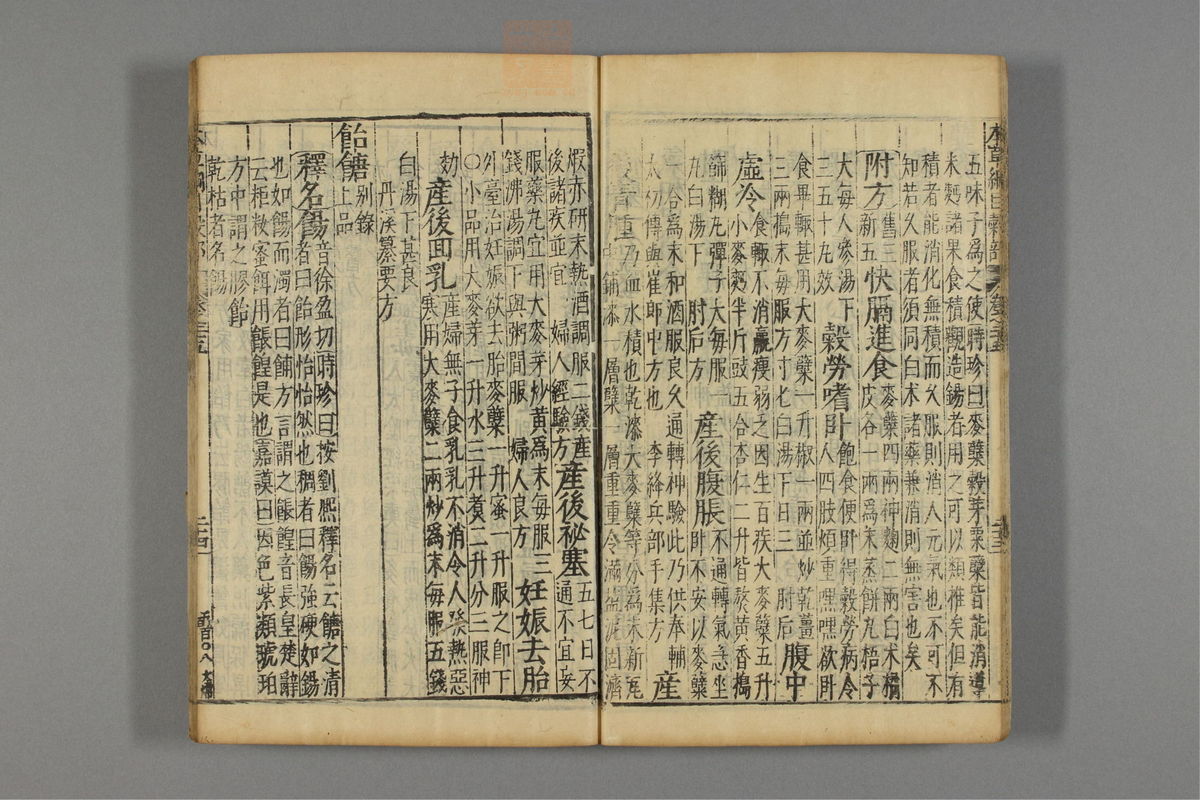 五味子爲之使時珍曰麥櫱穀芽粟櫱皆能消導
米麪諸果食積觀造餳者用之可以類推矣但有
積者能消化無積而久服則消人元氣也不可不
知若久服者須同白朮諸藥兼消則無害也矣
附方舊三新五快膈進食麥櫱四兩神麴二兩白朮橘皮各一兩爲末蒸餅丸梧子
大每人參湯下三五十丸效穀勞嗜卧飽食便卧得穀勞病令人四肢煩重嘿嘿欲卧
食畢輒甚用大麥櫱一升椒一兩並炒乾薑三兩擣末每服方寸匕白湯下日三肘后腹中
虛冷食輒不消羸瘦弱乏因生百疾大麥櫱五升小麥麪半斤豉五合杏仁二升皆熬黃香擣
篩糊丸彈子大每服一丸白湯下肘后方產後腹脹不通轉氣急坐卧不安以麥櫱
一合爲末和酒服良久通轉神驗此乃供奉輔太初傳與崔郎中方也李絳兵部手集方產
重乃血水積也乾漆大麥櫱等分爲末新瓦中鋪漆一層櫱一層重重令滿鹽泥固濟
煆赤研末熱酒調服二錢產後諸疾並宜婦人經驗方產後祕塞五七日不通不宜妄
服藥丸宜用大麥芽炒黃爲末每服三錢沸湯調下與粥間服婦人良方妊娠去胎
外臺治妊娠欲去胎麥櫱一升蜜一升服之卽下〇小品用大麥芽一升水三升煮二升分三服神
効產後回乳產婦無子食乳乳不消令人發熱惡寒用大麥櫱二兩炒爲末每服五錢
白湯下甚良丹溪纂要方
飴餹別錄上品
釋名餳音徐盈切時珍曰按劉熙釋名云餹之清者曰飴形怡怡然也稠者曰餳強硬如錫
也如餳而濁者曰餔方言謂之餦餭音長皇楚辭云粔籹蜜餌用餦餭是也嘉謨曰因色紫類琥珀
方中謂之膠飴乾枯者名餳